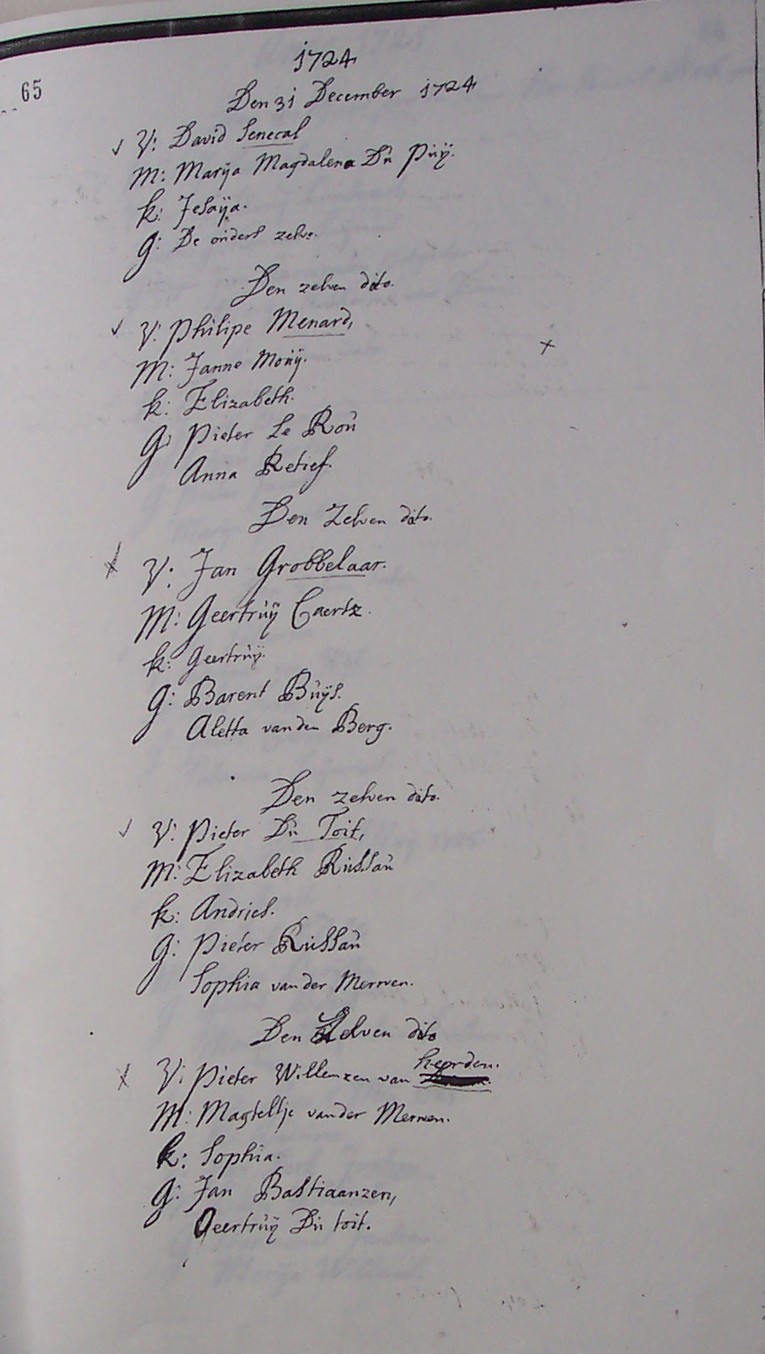 1724
65
Den 31 December 1724
V: David Senecal
M: Marÿa Magdalena Dù Pùÿ.
k: Jesaÿa.
G: De ouders zelve.
Den zelven dito.
V: Philipe Menard,
M: Janne Moùÿ.
k: Elizabeth.
G: Pieter Le Roù
Anna Retief.
Den Zelven dito.
V: Jan Grobbelaar.
M: Geertruÿ Caertz.
k: Geertruÿ.
G: Barent Bùÿs.
Aletta van den Berg.
Den zelven dito.
V: Pieter Dù Toit,
M: Elizabeth Rùssaù
k: Andries.
G: Pieter Rùssaù
Sophia van der Merwen.
Den Zelven dito
V: Pieter Willemzen van heerden.
M: Magteltje van der Merwen.
k: Sophia.
G: Jan Bastiaanzen,
Geertruÿ Dù toit.